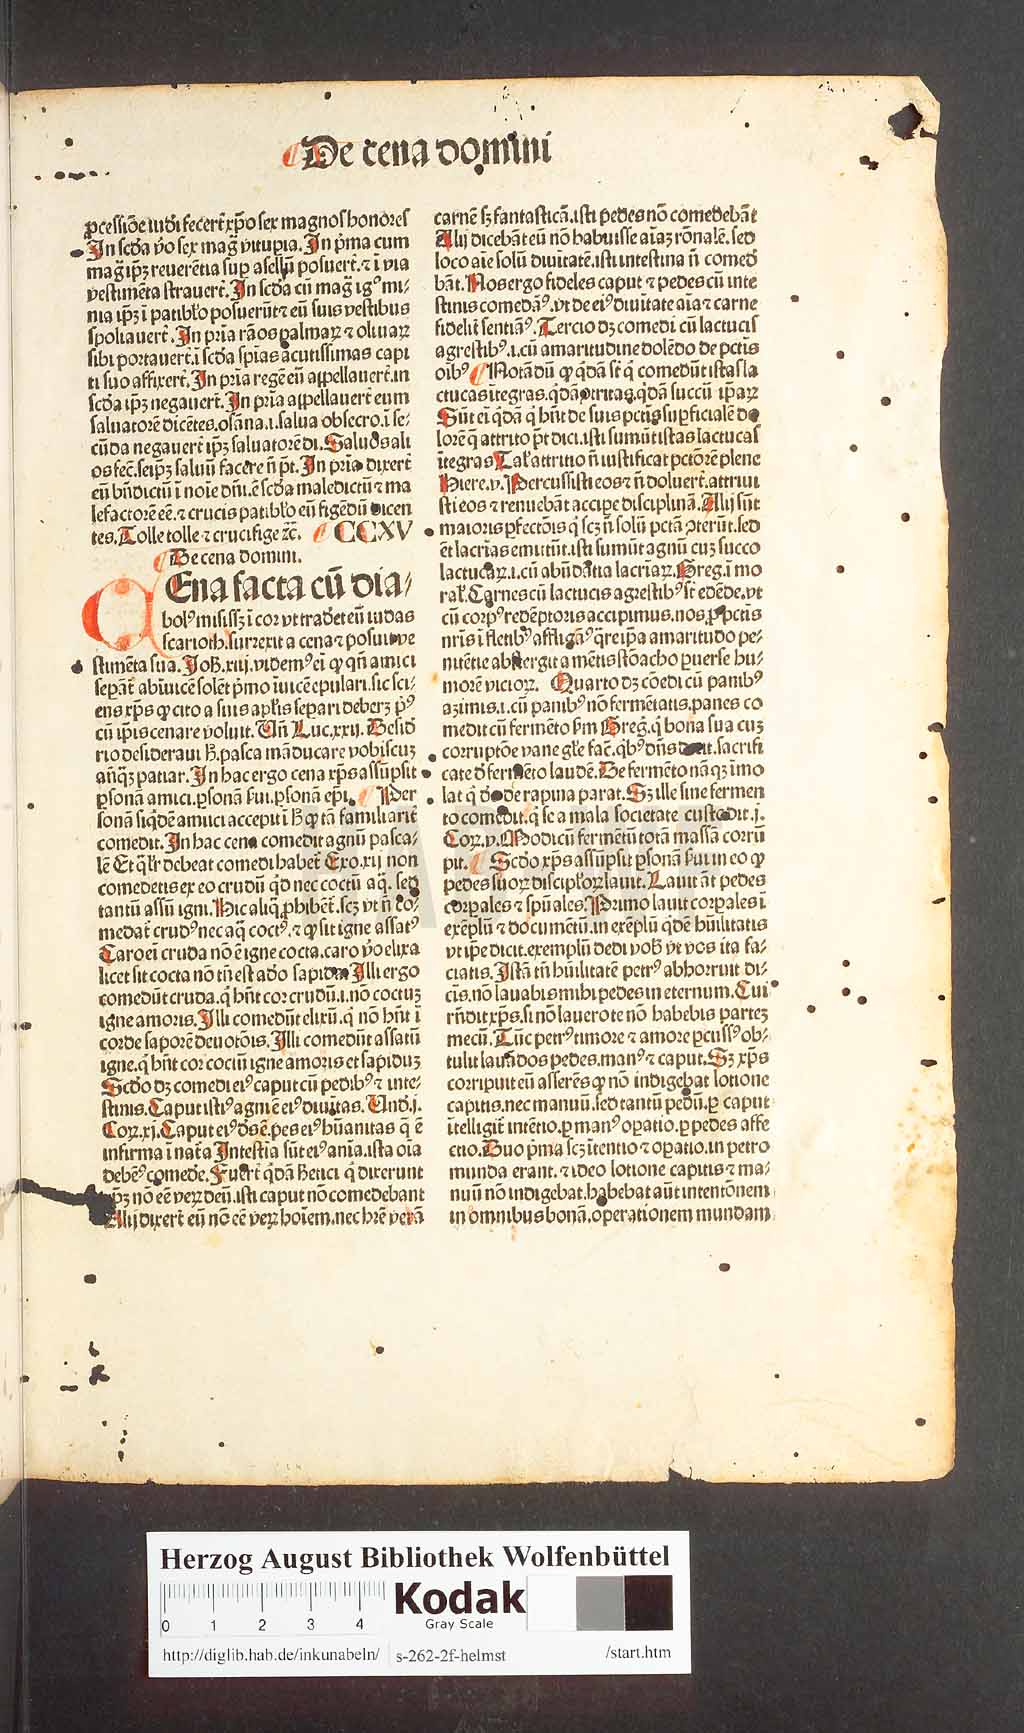 De cena domini
ꝓcessiõe iudi fecert̃ xp̃o sex magnos honores
In scďa ꝟo sex mag̃ vituꝑia. In p̃ma cum
mag̃ ip̃ꝫ reuerẽtia suꝑ asellũ posuert̃. ⁊ ĩ via
vestimẽta strauert̃. In scďa cũ mag̃ igꝰ mi⸗
nia ip̃ꝫ ĩ patibl̃o posuerũt ⁊ eũ suis vestibus
spoliauert̃. In pria rãos palmaꝝ ⁊ oliuaꝝ
sibi portauert̃. ĩ scďa spias acutissimas capi
ti suo affixert̃. In pria regẽ eũ appellauert̃. in
scďa ip̃ꝫ negauert̃. In pria appellauert̃ eum
saluatorẽ dicẽtes. osãna .i. salua obsecro. ĩ se⸗
cũda negauert̃ ip̃ꝫ saluatorẽ di. Saluos ali
os fec̃. seip̃ꝫ saluũ facere ñ p̃t. In pria dixert̃
eũ bñdictũ ĩ noie dñi. ĩ scďa maledictũ ⁊ ma
lefactorẽ eẽ. ⁊ crucis patibl̃o eũ figẽdũ dicen
tes. Tolle tolle ⁊ crucifige ⁊c̃. CCXV
De cena domini.
CEna facta cũ dia⸗
bolꝰ misissꝫ ĩ cor vt tradet̃ eũ iudas
scarioth. surrexit a cena ⁊ posuit ve
stimẽta sua. Joh̃. xiij. videmꝰ ei ꝙ qñ amici
sepãt̃ abinuicẽ solẽt p̃mo inuicẽ epulari. sic sci⸗
ens xp̃s ꝙ cito a suis apl̃is separi deberꝫ p̃ꝰ
cũ ip̃is cenare voluit. Uñ Luc. xxij. Desid
rio desideraui h̃ pasca mãducare vobiscuꝫ
añq̃ꝫ patiar. In hac ergo cena xp̃s assũpsit
ꝑsonã amici. ꝑsonã ẜui. ꝑsonã ep̃i. Per
sonã siqdẽ amici accepit ĩ h̃ ꝙ tã familiarit̃
comedit. In hac cena comedit agnũ pasca⸗
lẽ Et ql̃r debeat comedi habet̃ Exo. xij non
comedetis ex eo crudũ qd nec coctũ aq̃. sed
tantũ assũ igni. Hic aliq̃ ꝓhibẽt̃. scꝫ vt ñ co⸗
medat̃ crudꝰ nec aq̃ coctꝰ. ⁊ ꝙ sit igne assatꝰ
Caro ei cruda nõ ẽ igne cocta. caro ꝟo elixa
licet sit cocta nõ tñ est adeo sapida Illi ergo
comedũt cruda. q̃ hñt cor crudũ .i. nõ coctuꝫ
igne amoris. Illi comedũt elixũ. q̃ nõ hñt ĩ
corde saporẽ deuotõis. Illi comedũt assatũ
igne. q̃ hñt cor coctũ igne amoris et sapiduꝫ
Scďo dꝫ comedi eiꝰ caput cũ pedibꝰ ⁊ inte⸗
stinis. Caput istiꝰ agni ẽ eiꝰ diuĩtas. Uñ .j.
Coꝝ. xj. Caput eiꝰ dꝰ ẽ. pes eiꝰ hũanitas q̃ ẽ
infirma ĩ nat̃a Intestia sũt eiꝰ aia. ista oia
debẽꝰ comede. Fuert̃ qdã h̃etici q̃ dixerunt
ip̃ꝫ nõ eẽ veꝝ deũ. isti caput nõ comedebant
Alij dixert̃ eũ nõ eẽ veꝝ hoiem. nec hr̃e verã
carnẽ sꝫ fantasticã. isti pedes nõ comedebãt
Alij dicebãt eũ nõ habuisse aiaꝫ rõnalẽ. sed
loco aie solũ diuitatẽ. isti intestina ñ comed
bãt. Nos ergo fideles caput ⁊ pedes cũ inte
stinis comedãꝰ. vt de eiꝰ diuitate aia ⁊ carne
fidelit̃ sentiãꝰ. Tercio dꝫ comedi cũ lactucis
agrestibꝰ .i. cũ amaritudine dolẽdo de pctis
oibꝰ Notãdũ ꝙ qdã st̃ q̃ comedũt istas la
ctucas ĩtegras. qdã ꝯtritas. qdã succũ ip̃aꝝ
Sũt ei qdã q̃ hñt de suis pctis suꝑficialẽ do
lorẽ q̃ attritio p̃t dici. isti sumũt istas lactucas
ĩtegras Talꝭ attritio ñ iustificat pctõrẽ plene
Hiere. v. Percussisti eos ⁊ ñ doluert̃. attriui
sti eos ⁊ renuebãt accipe disciplinã. Alij sũt
maioris ꝑfectõis q̃ scꝫ ñ solũ pctã ꝯterũt. sed
et̃ lacrias emittũt. isti sumũt agnũ cuꝫ succo
lactucaꝝ .i. cũ abũdãtia lacriaꝝ. Greg. ĩ mo
ral̃. Carnes cũ lactucis agrestibꝰ st̃ edẽde. vt
cũ corpꝰ redẽptoris accipimus. nos ꝓ pctis
nr̃is ĩ fletibꝰ affligãꝰ. q̃re ip̃a amaritudo pe⸗
nitẽtie abstergit a mẽtis stõacho ꝑuerse hu⸗
morẽ vicioꝝ. Quarto dꝫ cõedi cũ panibꝰ
azimis .i. cũ panibꝰ nõ fermẽtatis. panes co
medit cũ fermẽto ẜm Greg. q̃ bona sua cuꝫ
corruptõe vane gl̃e fac̃. qbꝰ dñs dixit. sacrifi
cate d̃ fermẽto laudẽ. De fermẽto nãqꝫ imo
lat q̃ d̃o de rapina parat. Sꝫ ille sine fermen
to comedit. q̃ se a mala societate custodit .j.
Coꝝ. v. Modicũ fermẽtũ totã massã corrũ
pit. Scďo xp̃s assũpsit ꝑsonã ẜui in eo ꝙ
pedes suoꝝ discipl̃oꝝ lauit. Lauit ãt pedes
corꝑales ⁊ spũales. Primo lauit corꝑales ĩ
exẽplũ ⁊ documẽtũ. in exẽplũ qdẽ hũilitatis
vt ip̃e dicit. exemplũ dedi vob̃ vt vos ita fa⸗
ciatis. Istã tñ hũilitatẽ petrꝰ abhorruit di⸗
cẽs. nõ lauabis mihi pedes in eternum. Cui
rñdit xp̃s. si nõ lauero te nõ habebis partẽ
mecũ. Tũc petrꝰ timore ⁊ amore ꝑcussꝰ ob⸗
tulit lauãdos pedes. manꝰ ⁊ caput. Sꝫ xp̃s
corripuit eũ asserẽs ꝙ nõ indigebat lotione
capitis. nec manuũ. sed tantũ pedũ. ꝑ caput
ĩtelligit̃ intẽtio. ꝑ manꝰ oꝑatio. ꝑ pedes affe
ctio. Duo p̃ma scꝫ ĩtentio ⁊ oꝑatio. in petro
munda erant. ⁊ ideo lotione capitis ⁊ ma⸗
nuũ nõ indigebat. habebat aũt intentõnem
in omnibus bonã. operationem mundam
Herzog August Bibliothek Wolfenbüttel
0 1 2 3 4
Kodak
Gray Scale
http://diglib.hab.de/inkunabeln/ s-262-2f-helmst /start.htm
HAB